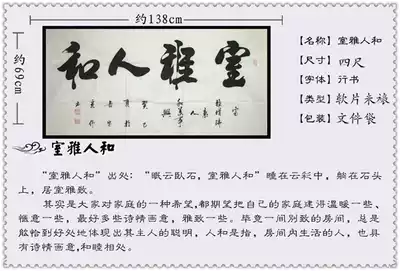 约138cm
约69cm
室雅人和
【名称】室雅人和
【尺寸】四尺
【字体】行书
【类型】软片未裱
【包装】文件袋
室雅人和
“室雅人和”出处：“眠云卧石，室雅人和”睡在云彩中，躺在石头
上，居室雅致。
其实是大家对家庭的一种希望，都期望把自己的家庭建得温暖一些、
惬意一些，最好多些诗情画意，雅致一些。毕竟一间别致的房间，总是
能恰到好处地体现出其主人的聪明，人和是指，房间内生活的人，也具
有诗情画意，和睦相处。